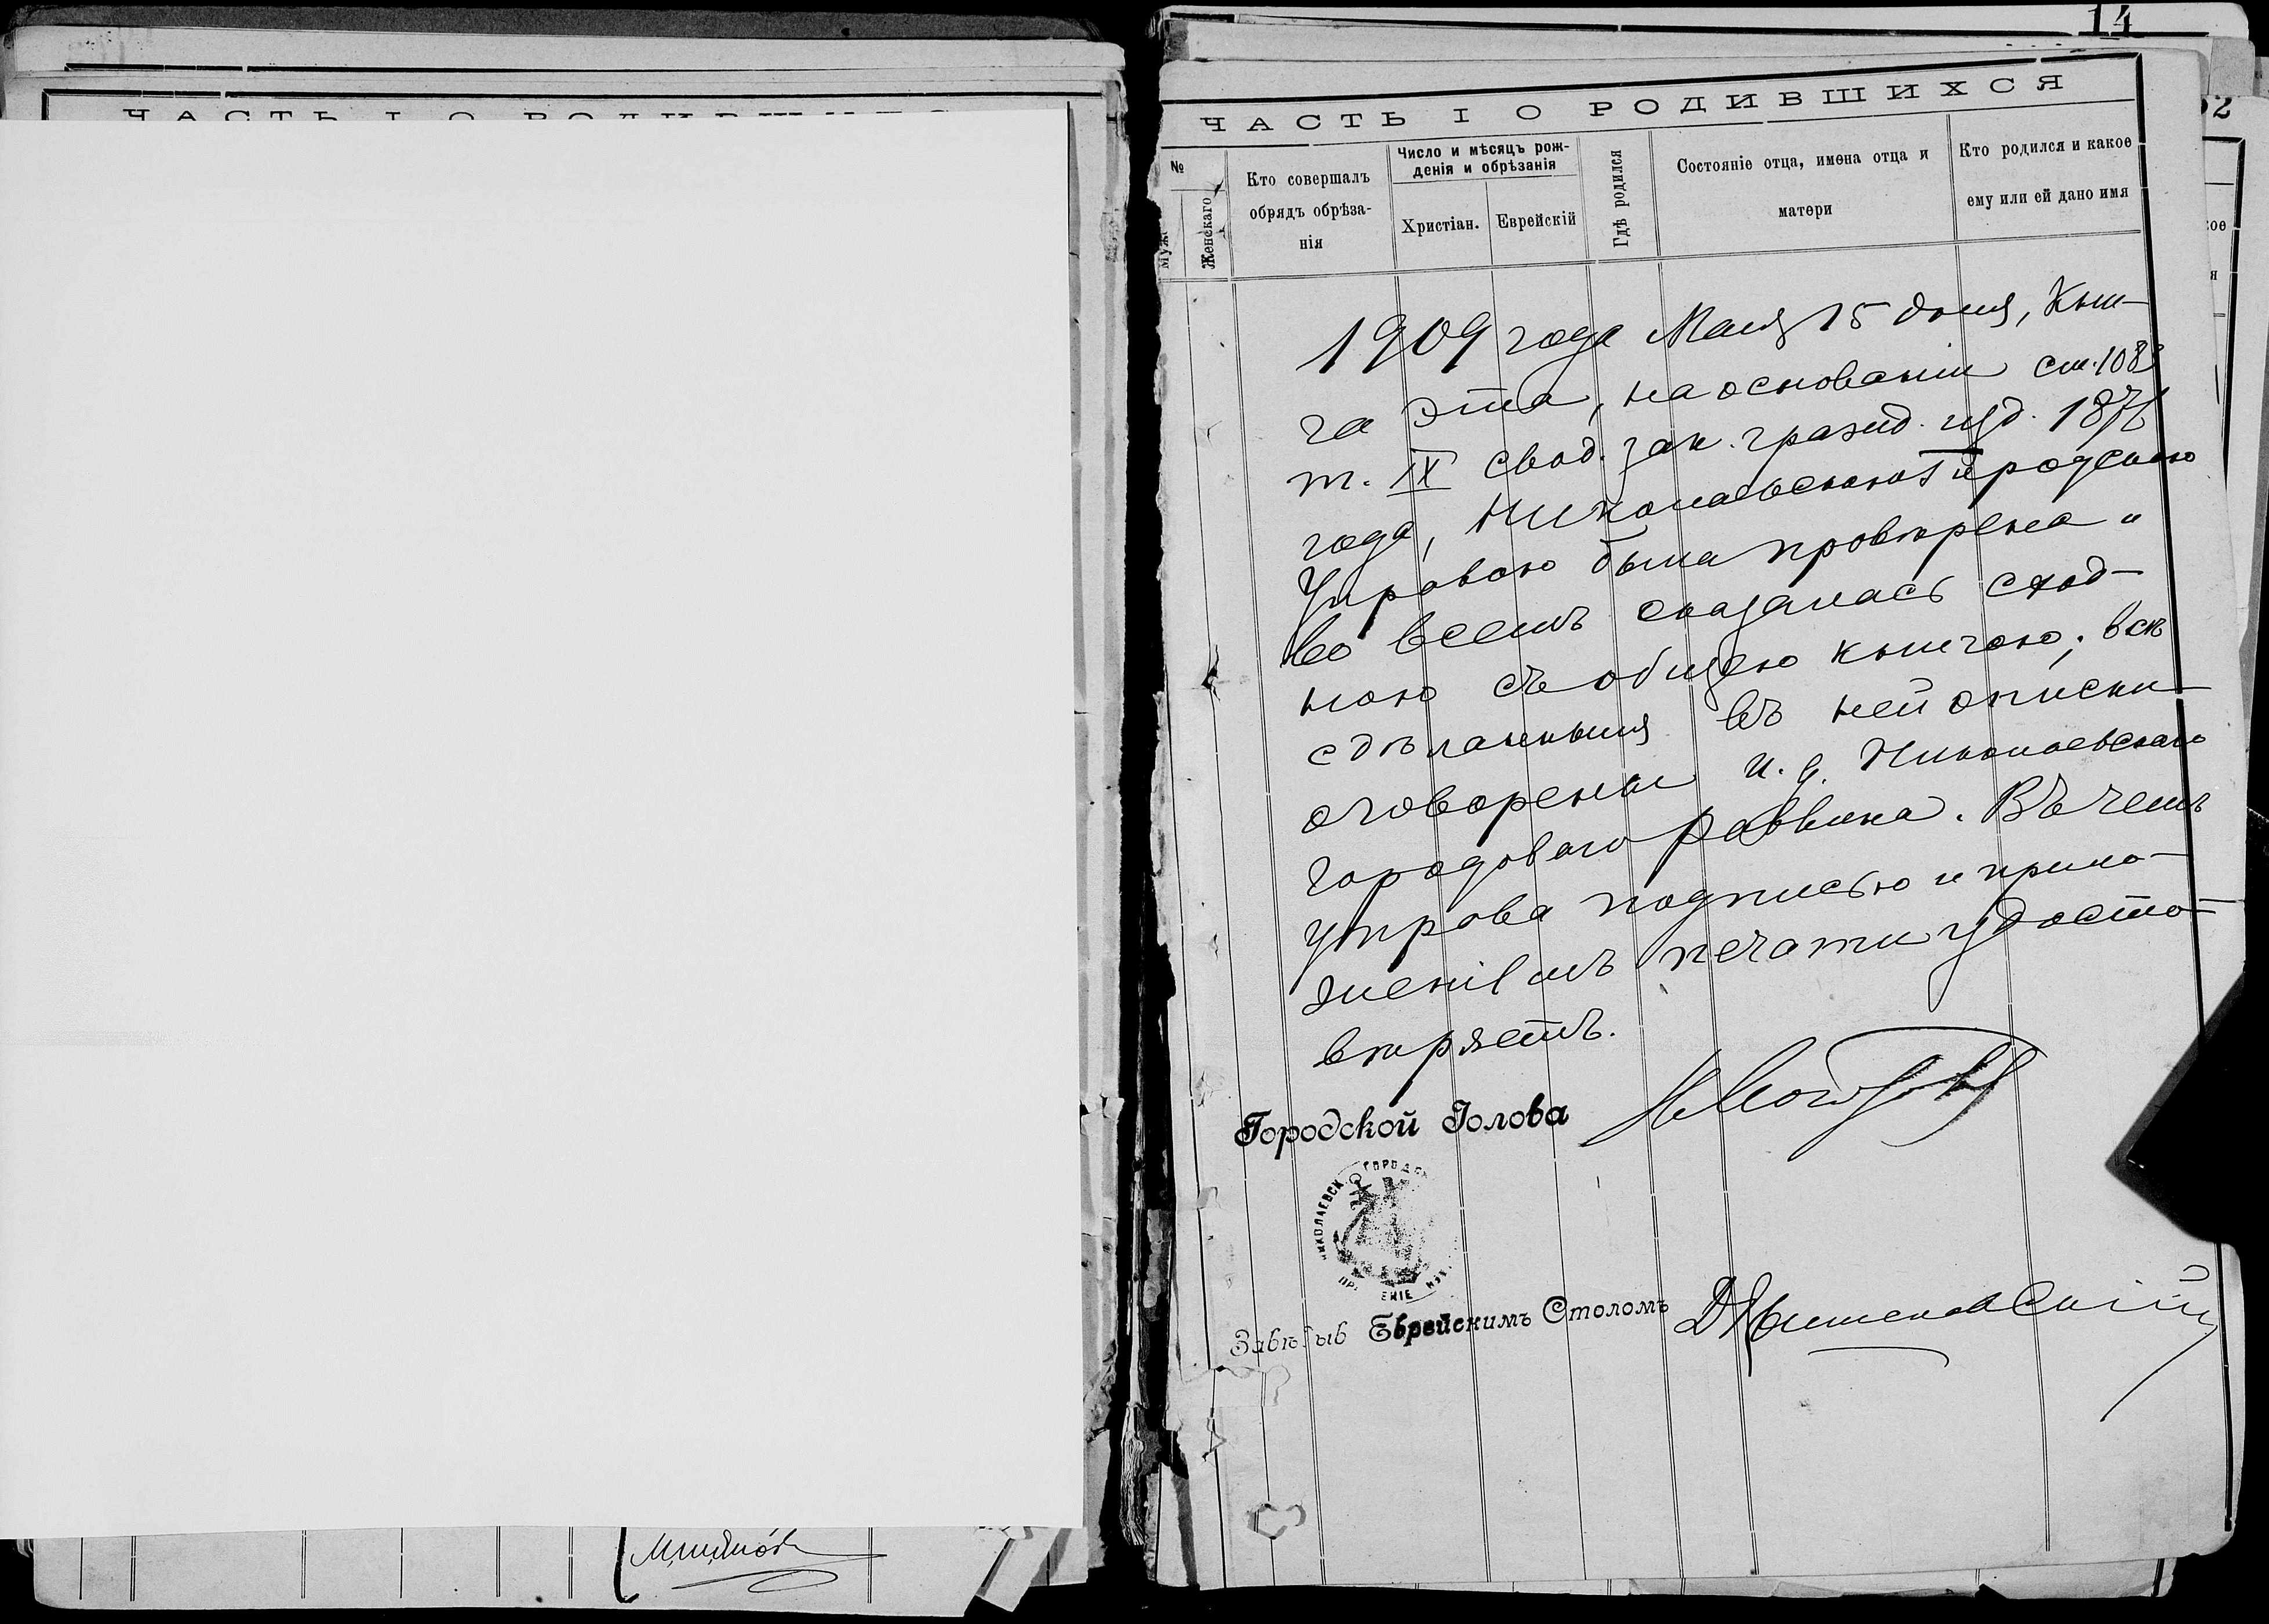 14
ЧАСТЬ I О РОДИВШИХСЯ
№
Женскаго
Кто совершалъ
обрядъ обрѣза-
нія
Число и мѣсяцъ рож-
денія и обрѣзанія
Христіан.
Еврейскій
Гдѣ родился
Состояніе отца, имена отца и
матери
Кто родился и какое
ему или ей дано имя
1909 года Мая 15 дня, Кни-
га эта, на основаніи ст. 108
т. IX свод. зак. гражд. изд. 1876
года, Николаевскою Городскою
Управою была провѣрена и
во всемъ оказалась сход-
ною съ общею книгою; всѣ
сдѣланныя въ ней описки
оговорены и. д. Николаевскаго
городоваго раввина. Въ чемъ
управа подписью и прило-
женіемъ печати удосто-
вѣряетъ.
Городской Голова
НИКОЛАЕВСК ГОРОДС
ЕНІЕ
Еврейскимъ Столомъ